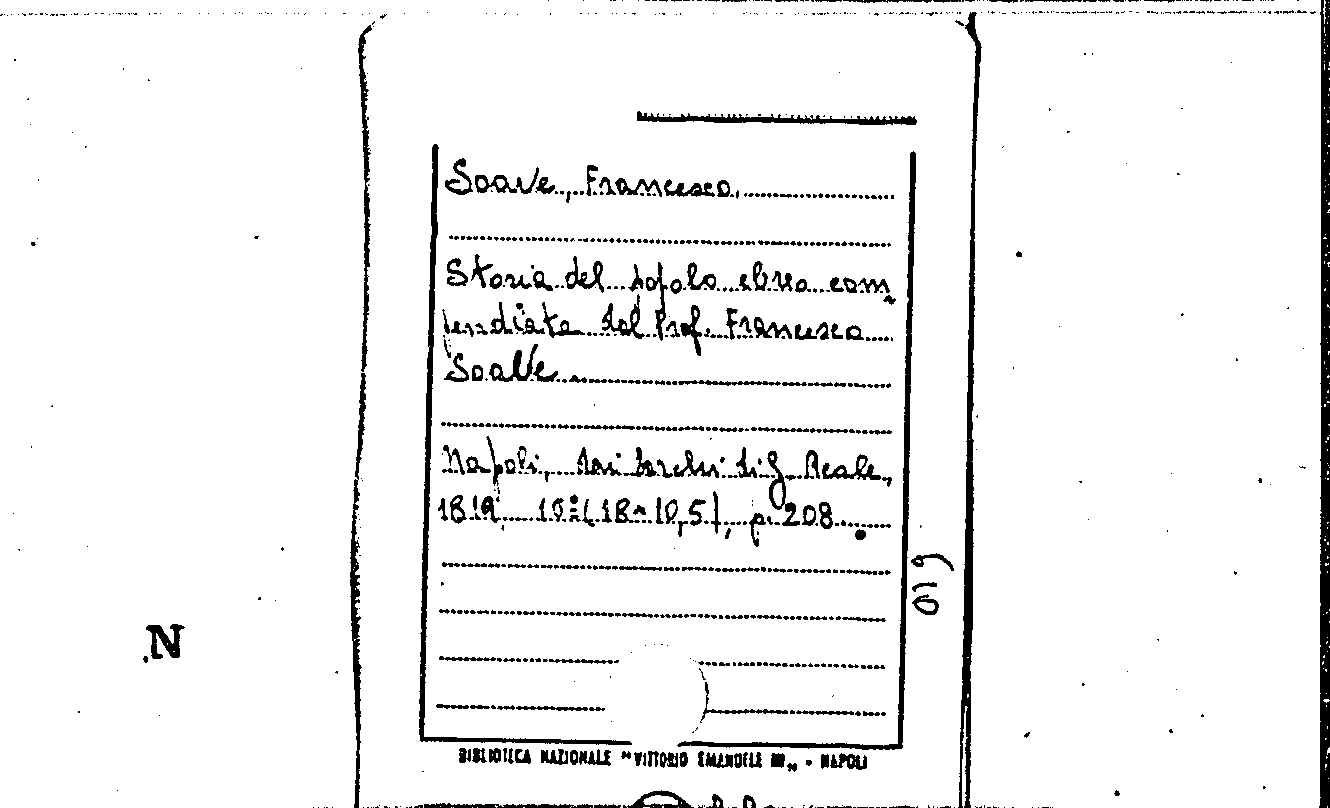 Soave, Francesco.
Storia del popolo ebreo com,
pendiata dal Prof. Francesco
Soave.
Napoli, dai torchi di G. Reale,
18 (18 × 10,5), p. 208.
019
N
BIBLIOTECA NAZIONALE "VITTORIO EMANUELE III„ - NAPOLI